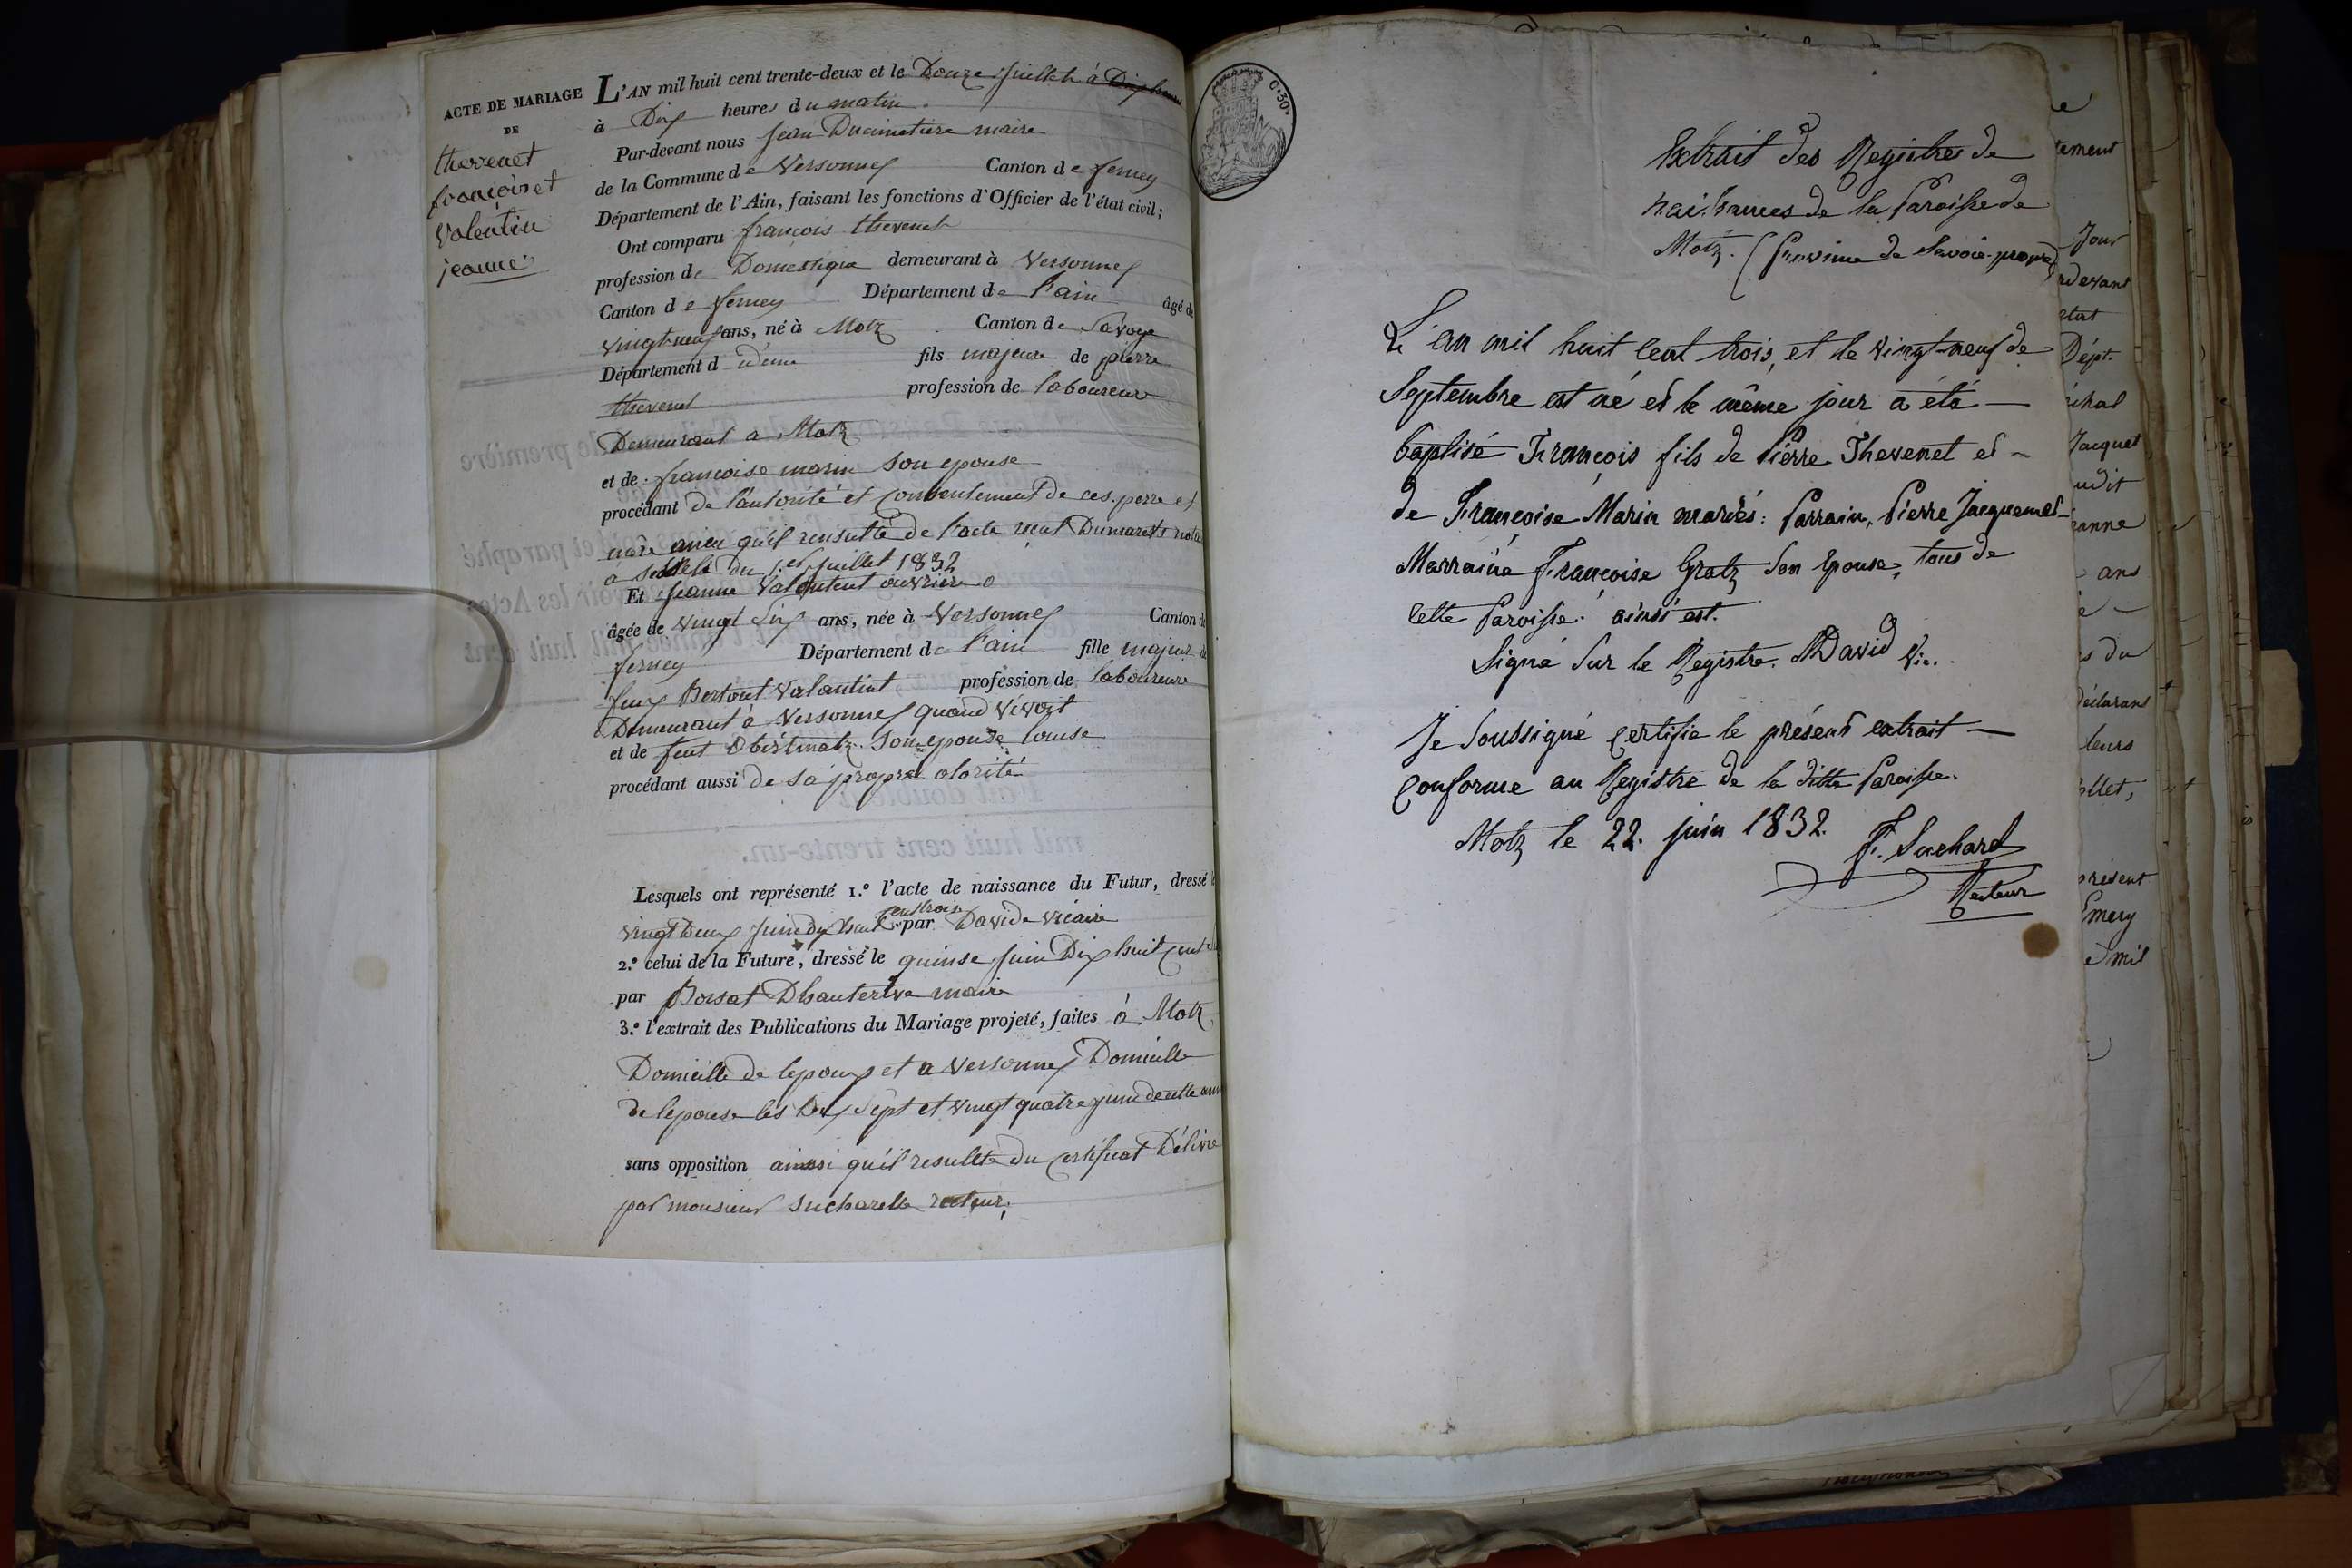 ACTE DE MARIAGE
DE
thevenet
francois et
Valentin
jeanne.
L'AN mil huit cent trente-deux et le Douze Juillet à Dix heures
à Dix heures du matin.
Par-devant nous jean Ducimetiere maire
de la Commune de Versonnex Canton de ferney
Département de l'Ain, faisant les fonctions d'Officier de l'état civil;
Ont comparu francois thevenet
profession de Domestique demeurant à Versonnex
Canton de ferney Département de L'ain âgé de
vingt-neuf ans, né à Motz Canton de Savoye
Département d idem fils majeure de pierre
thevenet profession de laboureur
Demeurant a Motz
et de francoise marin son epouse
procédant de l'autorité et consentement de ces perre et
mere qu'il rensulte de l'acte recut Dumarest
du 1er juillet 1832
Et jeanne Valentent ouvriere
âgée de vingt Six ans, née à Versonnex Canton de
ferney Département de L'ain fille majeur de
feux Valantint profession de laboureure
Demeurant à Versonnex quand Vivoit
et de feut son epouse louise
procédant aussi de sa propre otorité
Lesquels ont représenté 1.º l'acte de naissance du Futur, dressé
cent trois
vingt Deux Juin dix huit par Davide vicaire
2.º celui de la Future, dressé le quinse Juin Dix huit cent
par Borsat Dhauterive maire
3.º l'extrait des Publications du Mariage projeté, faites à Motz
Domicille de lepoux et a Versonnex Domicille
de lepouse les Dix Sept et vingt quatre juin de cette
sans opposition ainssi qu'il resulte du certificat Délivré
par monsieur Sucharelle recteur,
C. 30.
Extrait des Registres de
naissances de la Paroisse de
Motz. (Province de Savoie-propre)
L'an mil huit cent trois, et le vingt-neuf de
Septembre est né et le même jour a été —
baptisé François fils de Pierre Thevenet et -
de Françoise Marin mariés: Parrain, Pierre Jacquemet -
Marraine Françoise Gratz son Epouse, tous de
cette Paroisse. ainsi est.
Signé sur le Registre. David Vic.
Je soussigné certifie le présent extrait —
conforme au Registre de la ditte Paroisse.
Motz le 22. juin 1832.
F. Suchard
Recteur
Jour
Dépt.
Jacquet
ans
du
leurs
présent
Emery
mil